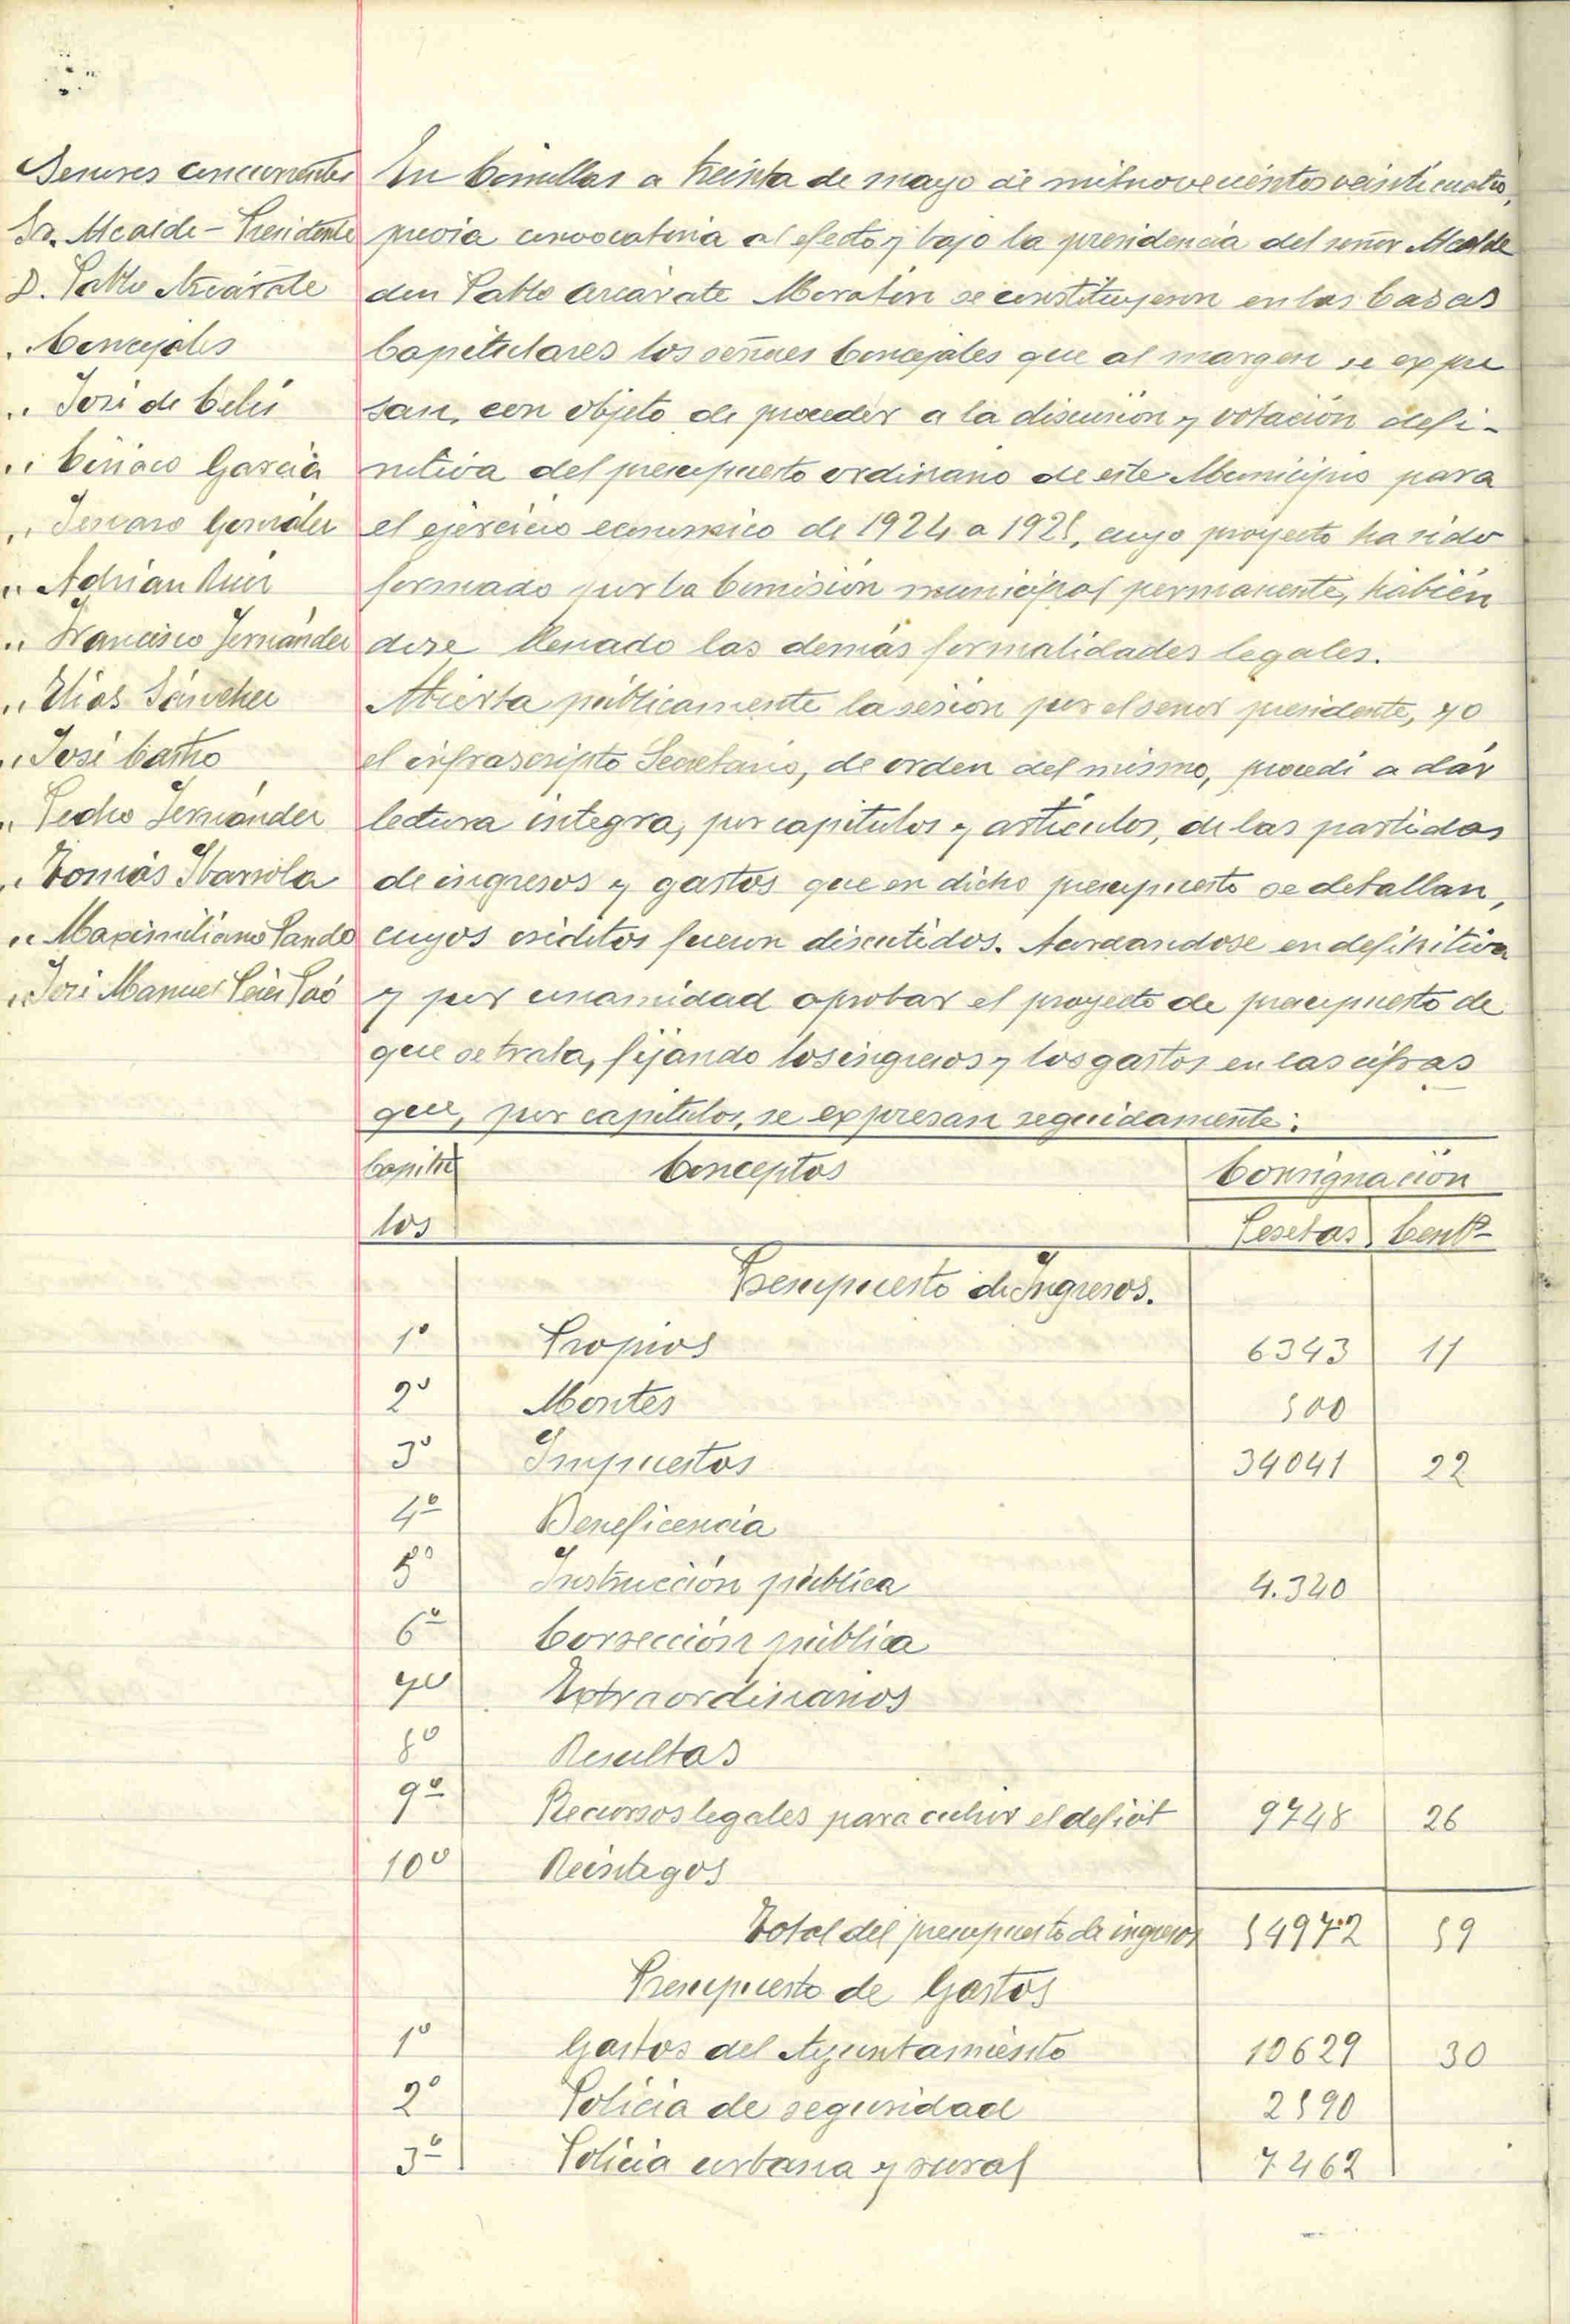 Señores concurrentes
Sr. Alcalde-Presidente
D. Pablo Azcárate
. Concejales
" José de Celis
" Ciriaco García
" Genaro González
" Adrian Ruiz
" Francisco Fernández
" Elías Sánchez
" José Castro
" Pedro Fernández
" Tomás Ibarrola
" Maximiliano Pando
" José Manuel
En Comillas a treinta de mayo de mil novecientos veinticuatro,
previa convocatoria al efecto y bajo la presidencia del señor Alcalde
don Pablo Azcárate Moratin se constituyeron en las Casas
Capitulares los señores Concejales que al margen se expre
san, con objeto de proceder a la discusión y votación defi-
nitiva del presupuesto ordinario de este Municipio para
el ejercicio economico de 1924 a 1925, cuyo proyecto ha sido
formado por la Comisión municipal permanente, habién
dose llenado las demás formalidades legales.
Abierta públicamente la sesión por el señor presidente, yo
el infrascripto Secretario, de orden del mismo, procedi a dár
lectura integra, por capitulos y artículos, de las partidas
de ingresos y gastos que en dicho presupuesto se detallan,
cuyos créditos fueron discutidos. Acordandose en definitiva
y por unamidad aprobar el proyecto de presupuesto de
que se trata, fijando los ingresos y los gastos en las cifras
que, por capitulos, se expresan seguidamente:
Capítu Conceptos Consignación
los Pesetas Cents
Presupuesto de Ingresos.
1º Propios 6343 11
2º Montes 500
3º Impuestos 34041 22
4º Beneficencia
5º Instrucción pública 4.340
6º Corrección pública
7º Extraordinarios
8º Resultas
9º Recursos legales para cubrir el deficit 9748 26
10º Reintegos
Total del presupuesto de ingresos 54972 59
Presupuesto de Gastos
1º Gastos del Ayuntamiento 10629 30
2º Policia de seguridad 2590
3º Policia urbana y rural 7462